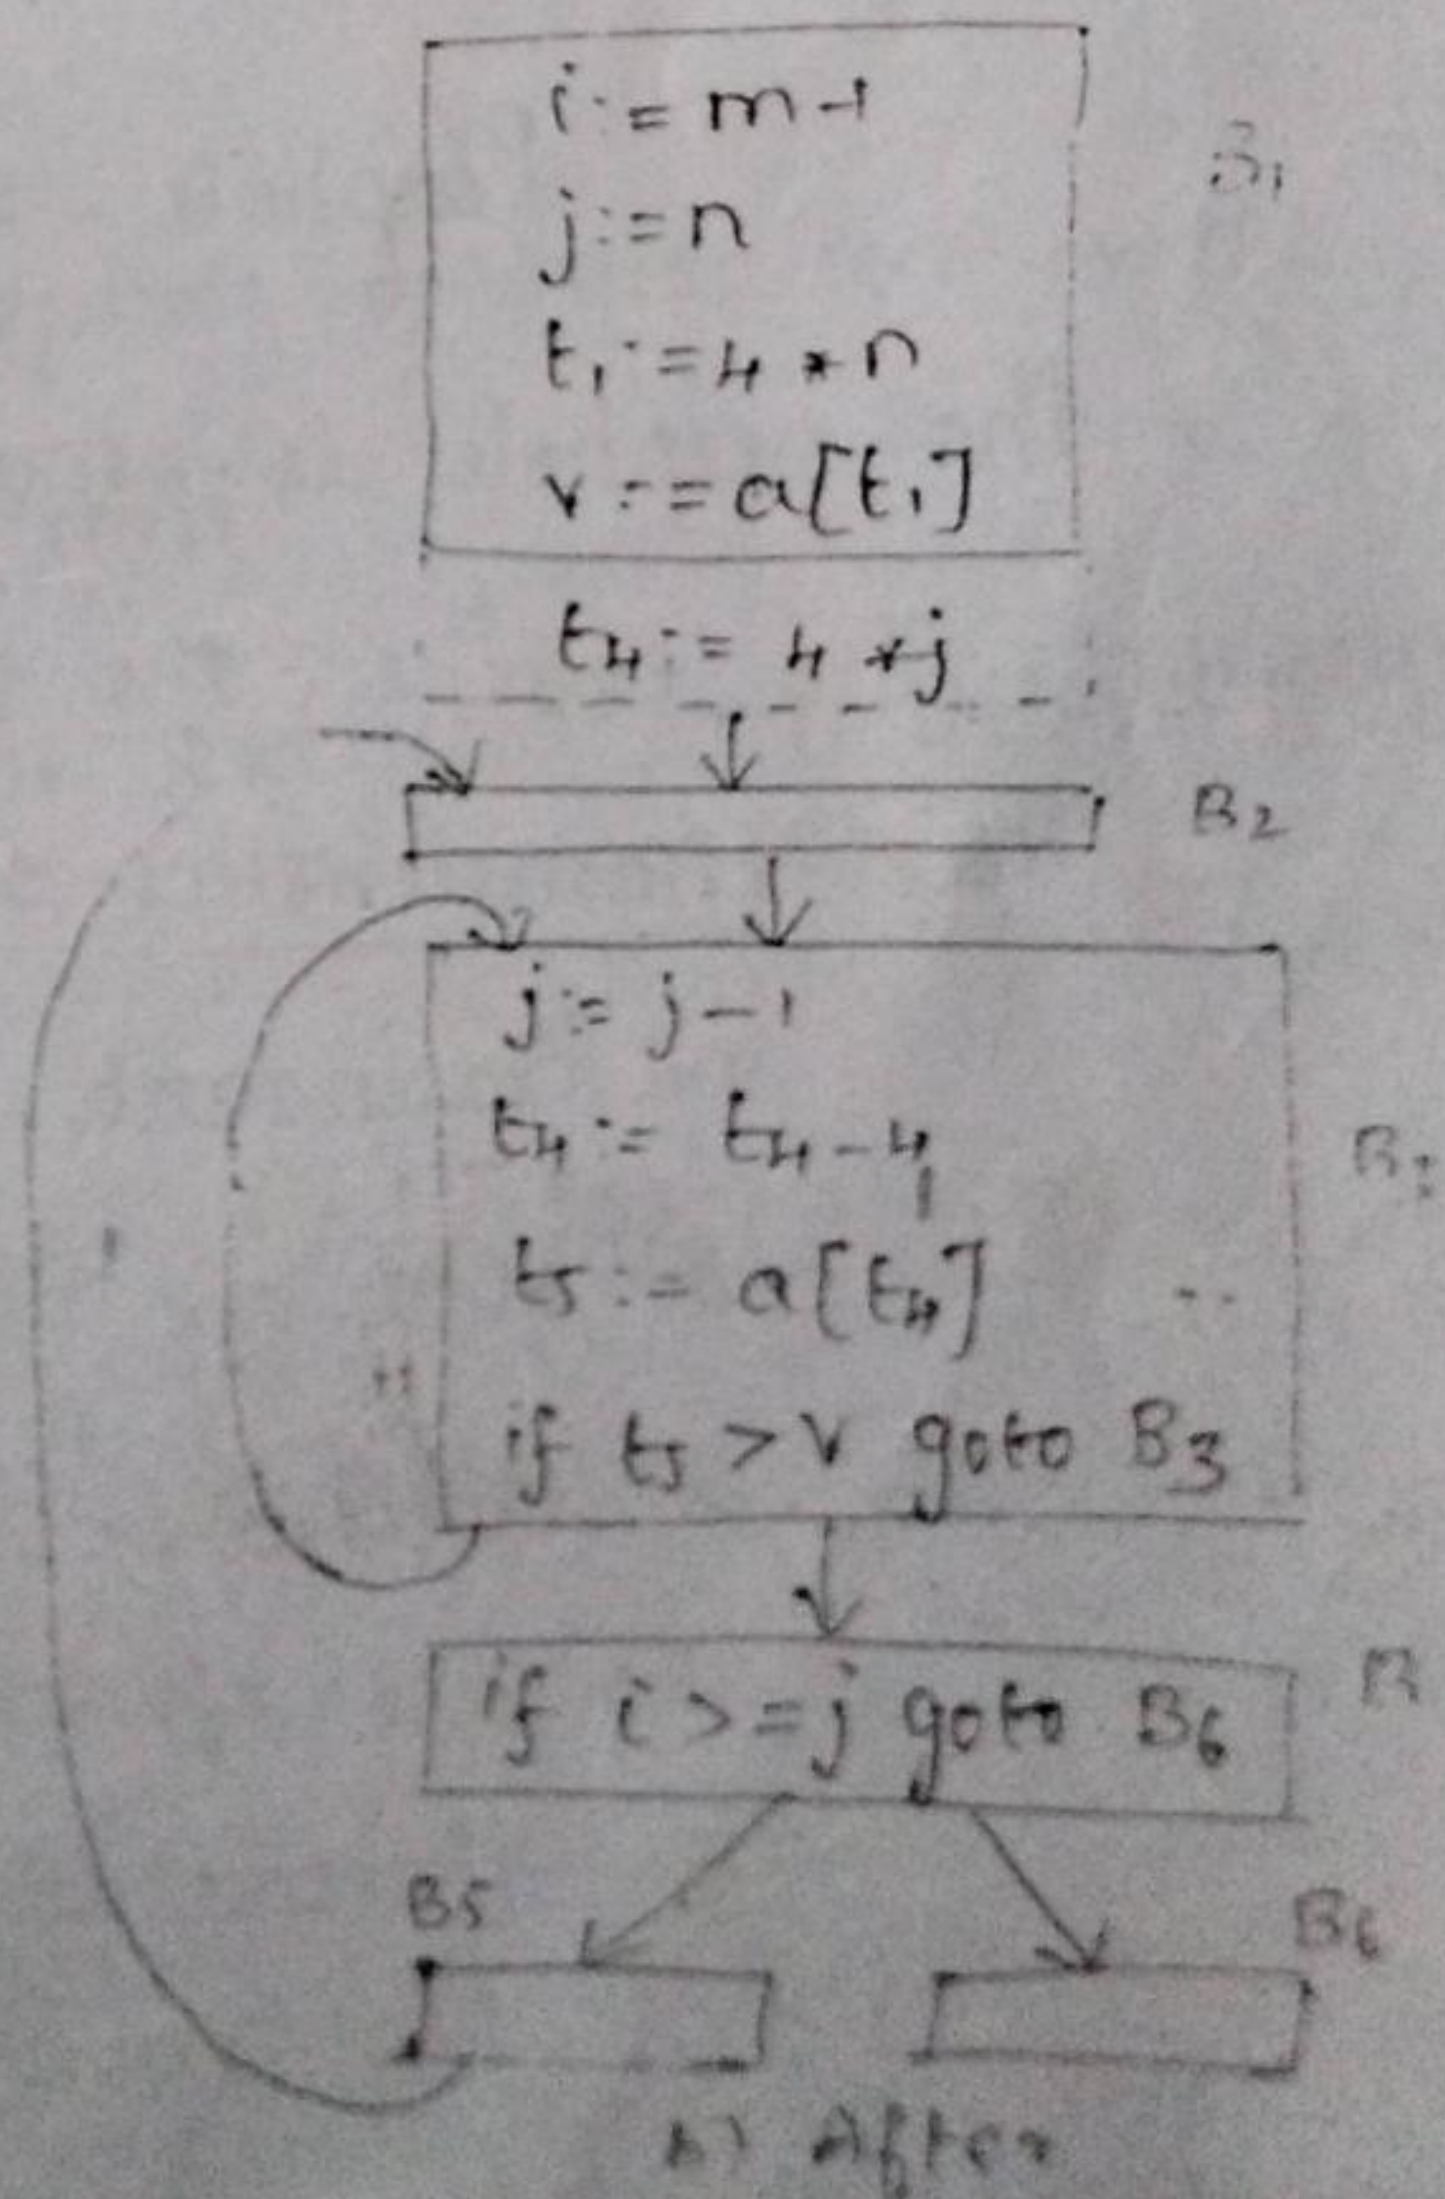 i := m-1
B1
j := n
t1 := 4 * n
v := a[t1]
t4 := 4 * j
B2
j := j-1
t4 := t4-4
t5 := a[t4]
if t5 > v goto B3
if i >= j goto B6
B5
B6
b) After